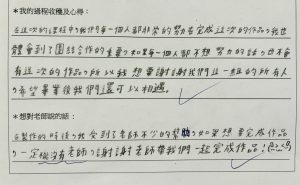 *我的過程收穫及心得:
在這次的課程中,我們每一個人都非常的努力在完成這次的作品,我也
體會到了團結合作的重要,如果每一個人都不想努力的話,也不會
有這次的作品,所以我想要謝謝我們這一組的所有人
,希望畢業後我們還可以相遇。
*想對老師說的話:
在製作的時後,我受到了老師不少的幫助,如果想要完成作品
,一定極沒有老師,謝謝老師帶我們一起完成作品!